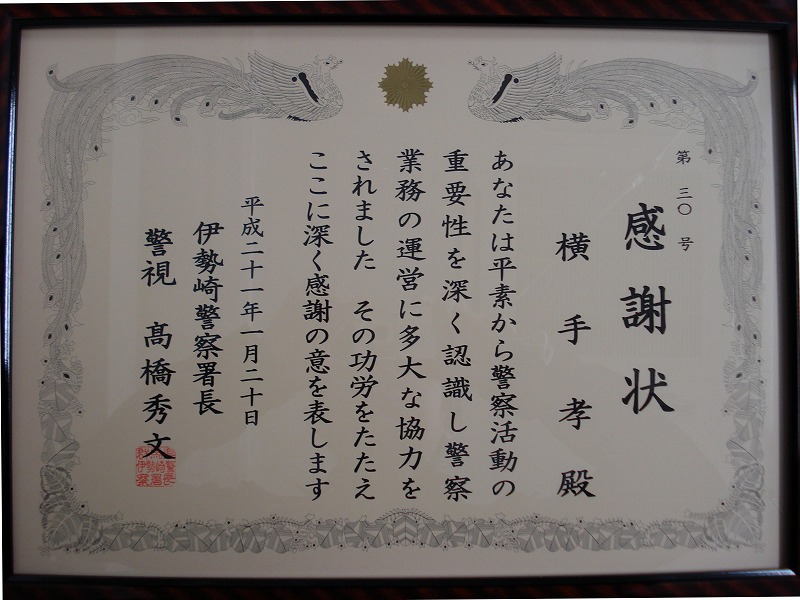 第三〇号
感謝状
横手孝殿
あなたは平素から警察活動の
重要性を深く認識し警察
業務の運営に多大な協力を
されました その功労をたたえ
ここに深く感謝の意を表します
平成二十一年一月二十日
伊勢崎警察署長
警視 髙橋秀文